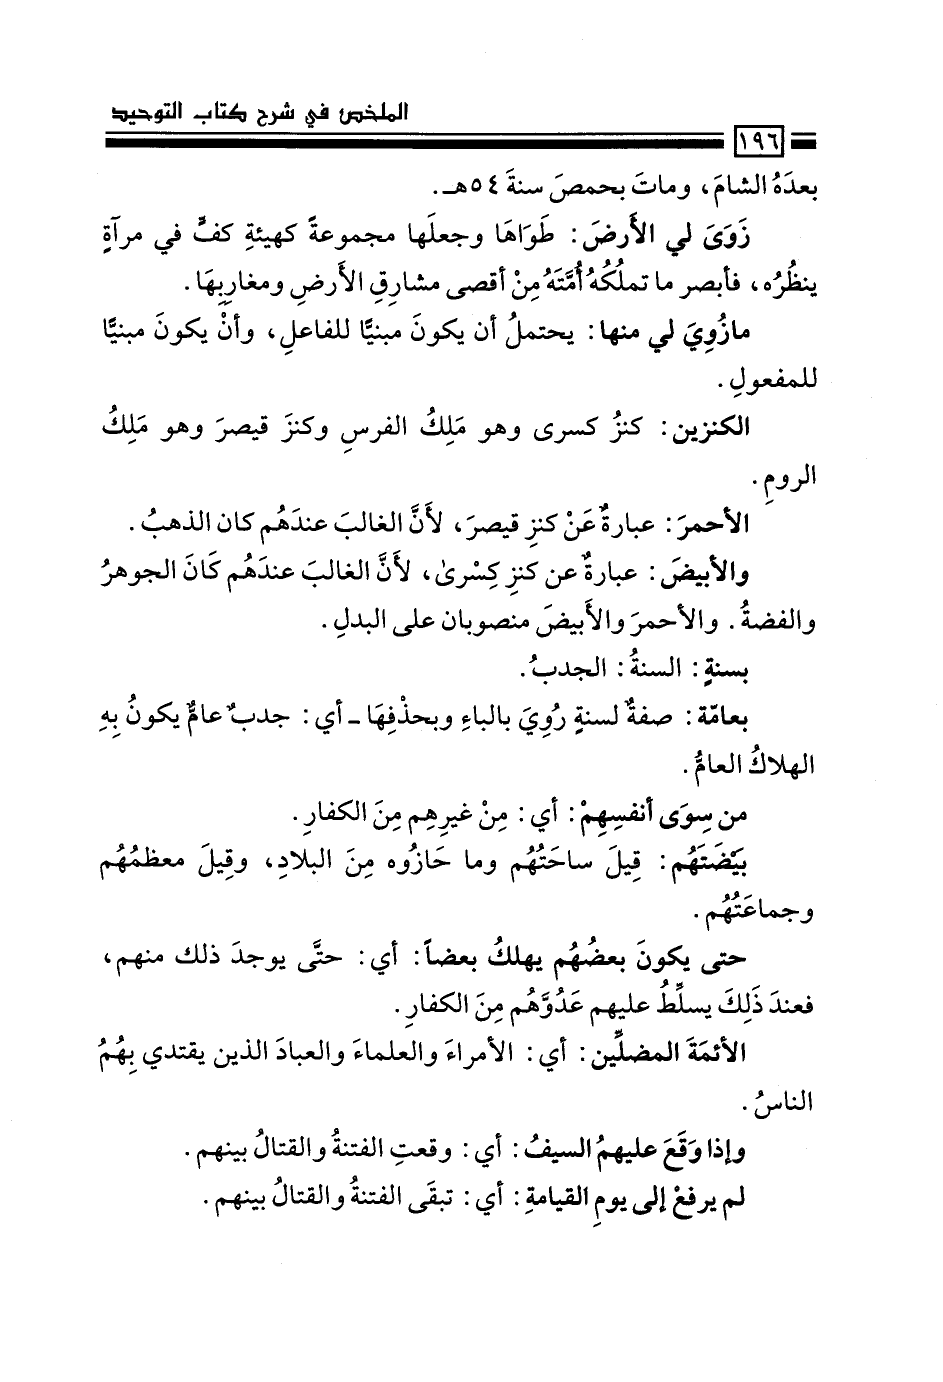 الملخص في شرح كتاب التوحيد
١٩٦
بعدَهُ الشامَ، وماتَ بحمصَ سنةَ ٥٤هـ.
زَوَىَ لي الأَرضَ: طَوَاهَا وجعلَها مجموعةً كهيئةِ كفٍّ في مرآةٍ
ينظُرُه، فأبصر ما تملُكُهُ أُمَّتَه مِنْ أقصى مشارقِ الأَرضِ ومغاربِهَا.
مازُوِيَ لي منها: يحتملُ أن يكونَ مبنيًّا للفاعلِ، وأنْ يكونَ مبنيًّا
للمفعولِ.
الكنزين: كنزُ كسرى وهو مَلِكُ الفرسِ وكنزَ قيصرَ وهو مَلِكُ
الرومِ.
الأحمرَ: عبارةٌ عَنْ كنزِ قيصرَ، لأَنَّ الغالبَ عندَهُم كان الذهبُ.
والأبيضَ: عبارةٌ عن كنزِ كِسْرىٰ، لأَنَّ الغالبَ عندَهُم كَانَ الجوهرُ
والفضةُ. والأحمرَ والأَبيضَ منصوبان على البدلِ.
بسنةٍ: السنةُ: الجدبُ.
بعامّة: صفةٌ لسنةٍ رُوِيَ بالباءِ وبحذْفِهَا ـ أي: جدبٌ عامٌّ يكونُ بِهِ
الهلاكُ العامُّ.
من سِوَى أنفسِهِمْ: أي: مِنْ غيرِهِم مِنَ الكفارِ.
بَيْضَتَهُم: قِيلَ ساحَتُهُم وما حَازُوه مِنَ البلادِ، وقِيلَ معظمُهُم
وجماعَتُهُم.
حتى يكونَ بعضُهُم يهلكُ بعضاً: أي: حتَّى يوجدَ ذلك منهم،
فعندَ ذَلِكَ يسلِّطُ عليهم عَدُوَّهُم مِنَ الكفارِ.
الأئمَةَ المضلِّين: أي: الأمراءَ والعلماءَ والعبادَ الذين يقتدي بِهُمُ
الناسُ.
وإذا وَقَعَ عليهمُ السيفُ: أي: وقعتِ الفتنةُ والقتالُ بينهم.
لم يرفعْ إلى يومِ القيامةِ: أي: تبقَى الفتنةُ والقتالُ بينهم.